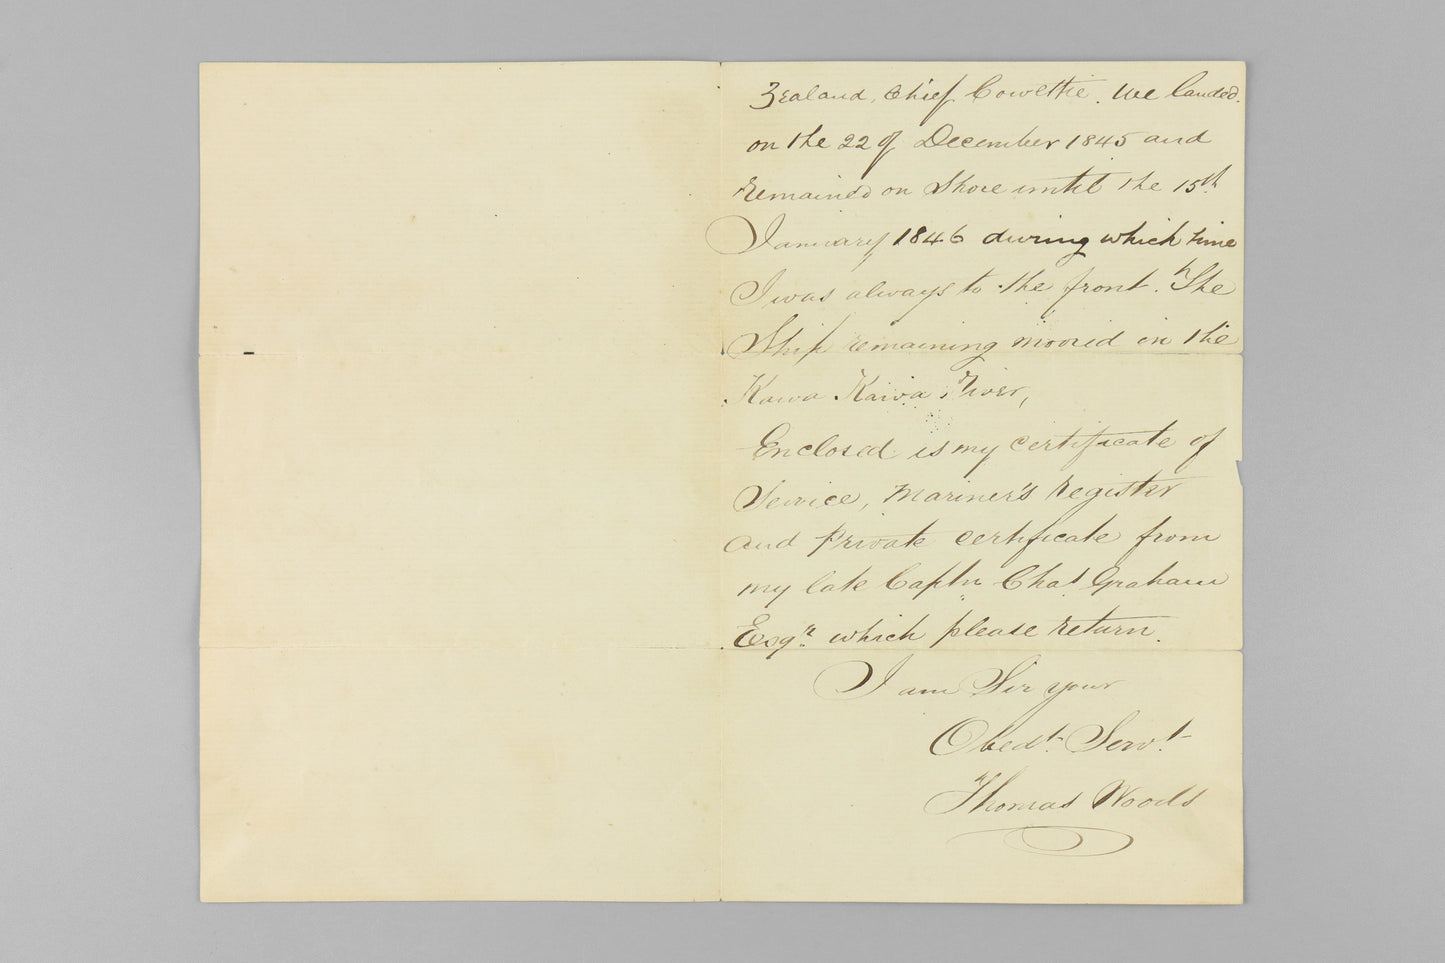 Zealand, Chief Cowettie. We landed.
on the 22 of December 1845 and
remained on Shore until the 15th
January 1846 during which time
I was always to the front. The
Ship remaining moored in the
Kawa Kawa River,
Enclosed is my certificate of
Service, Mariner's register
and private certificate from
my late Captn Chas Graham
Esqr. which please return.
I am Sir your
Obedt. Servt
Thomas Woods